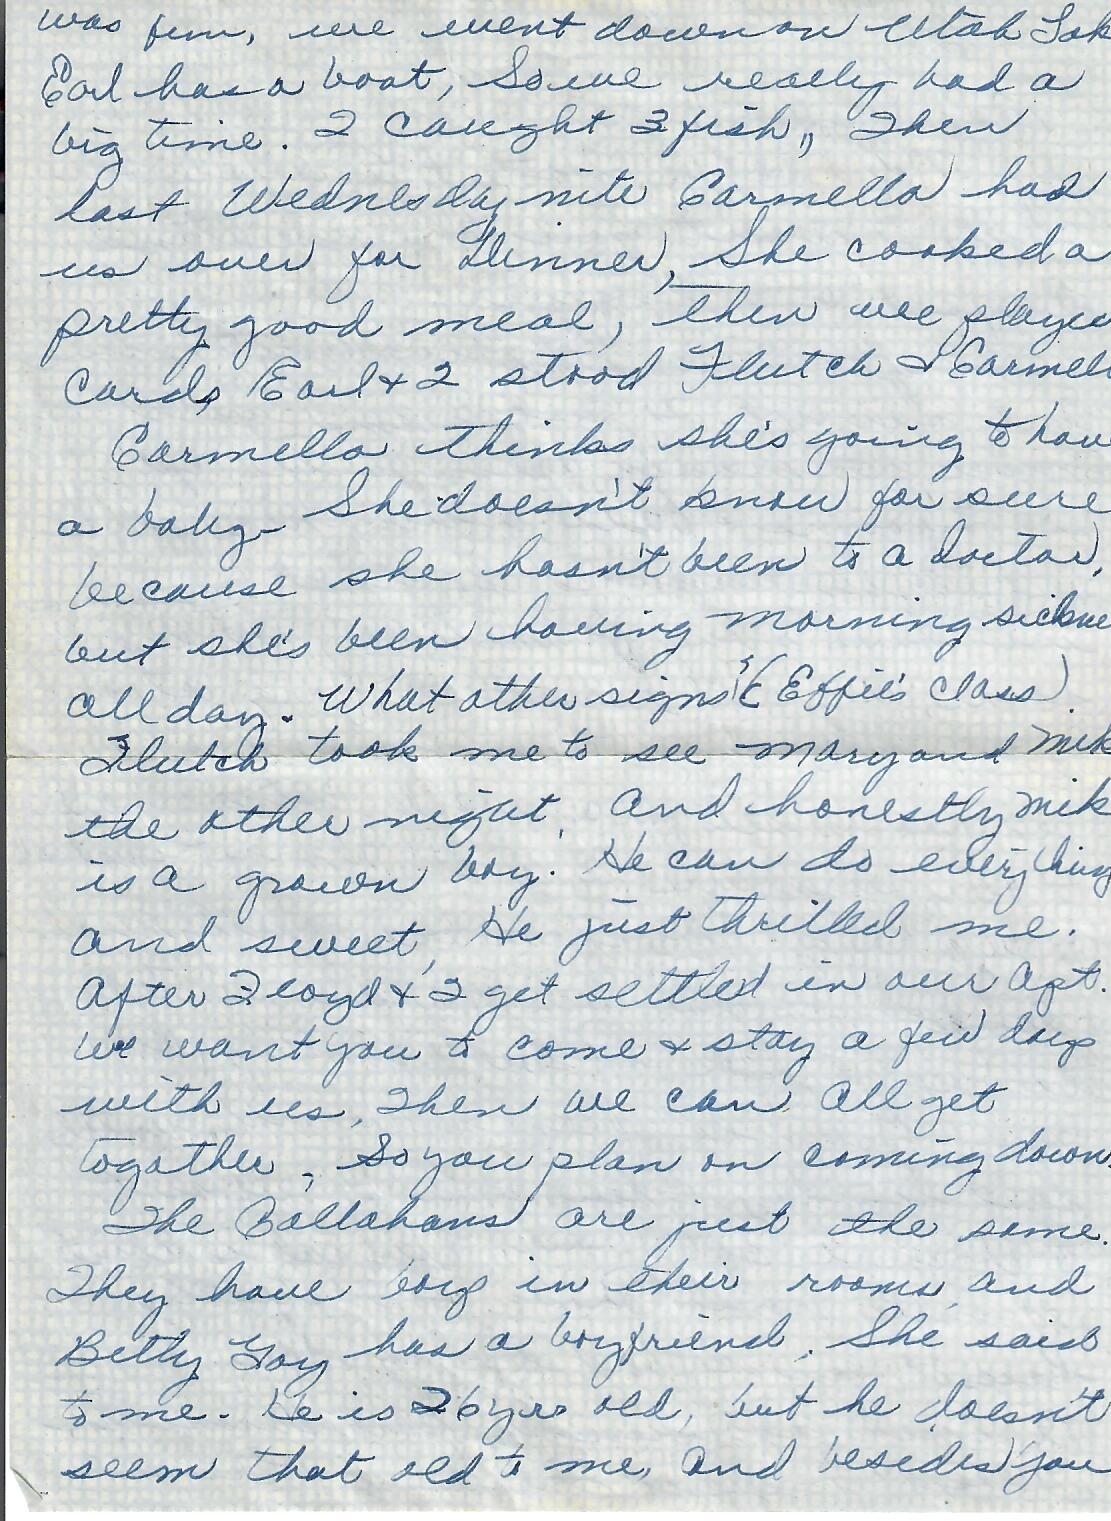 was fun, we went down on Utah Lak
Earl has a boat, So we really had a
big time. I caught 3 fish,, Then
last Wednesday nite Carmella had
us over for Dinner, She cooked a
pretty good meal, then we played
Cards, Earl & I stood Flutch & Carmell
Carmella thinks she's going to have
a baby - She doesn't know for sure
because she hasn't been to a doctor,
but she's been having morning sickne
all day. What other signs (Effie's class)
Flutch took me to see Mary and Mik
the other night, and honestly Mik
is a grown boy. He can do everything
and sweet, He just thrilled me.
After Floyd & I get settled in our apt.
We want you to come & stay a few days
with us, Then we can all get
togather, So you plan on coming down.
The Callahans are just the same.
They have boys in their rooms, and
Betty Gay has a boyfriend, She said
to me. He is 26 yrs old, but he doesn't
seem that old to me, and besides you